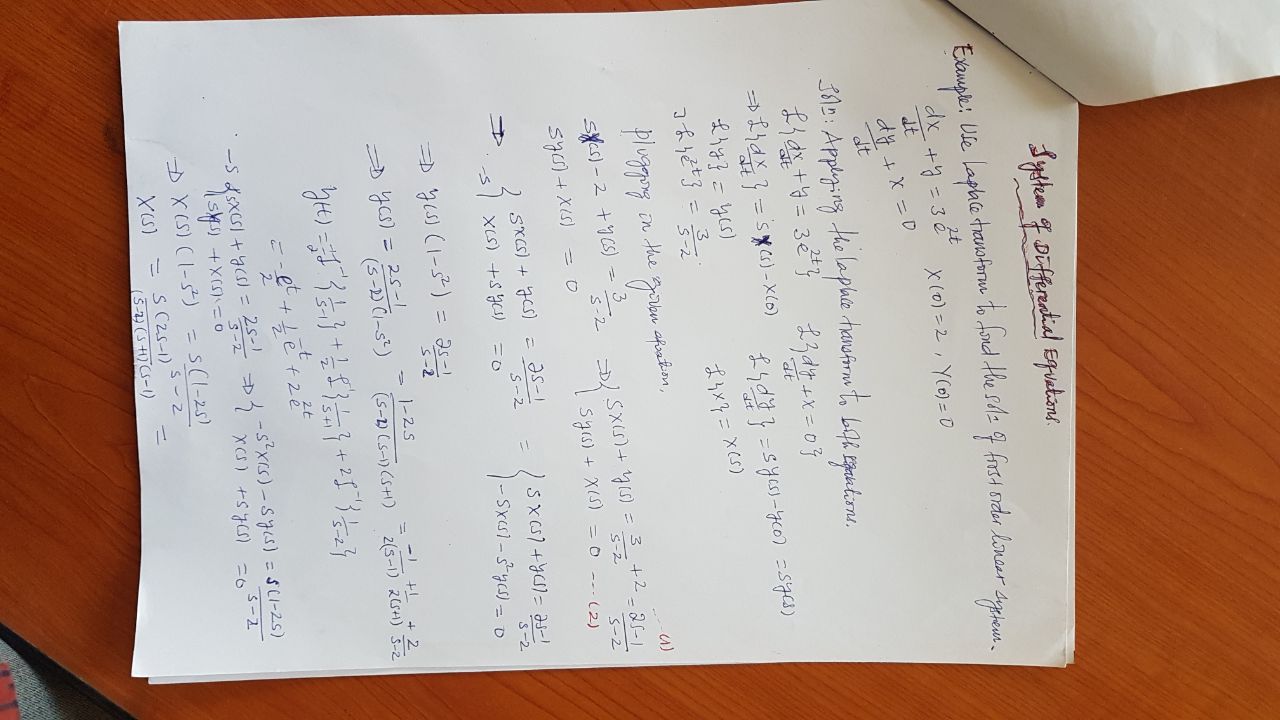 System of Differential Equations.
Example: Use Laplace transform to find the soln of first order linear system.
dx/dt + y = 3e^{2t}   x(0)=2, Y(0)=0
dy/dt + x = 0
Soln: Applying the Laplace transform to both equations.
ℒ{dx/dt + y = 3e^{2t}}   ℒ{dy/dt + x = 0}
⇒ ℒ{dx/dt} = sX(s) - x(0)   ℒ{dy/dt} = sy(s) - y(0) = sy(s)
ℒ{y} = y(s)   ℒ{x} = x(s)
ℒ{e^{2t}} = 3/(s-2).
plugging in the given equation,
sx(s) - 2 + y(s) = 3/(s-2) ⇒ { sx(s) + y(s) = 3/(s-2) + 2 = (2s-1)/(s-2) ...(1)
sy(s) + x(s) = 0   sy(s) + x(s) = 0 ----(2)
⇒ { sx(s) + y(s) = (2s-1)/(s-2) = { sx(s) + y(s) = (2s-1)/(s-2)
-s { x(s) + sy(s) = 0   -sx(s) - s²y(s) = 0
⇒ y(s) (1-s²) = (2s-1)/(s-2)
⇒ y(s) = (2s-1)/((s-2)(1-s²)) = (1-2s)/((s-2)(s-1)(s+1)) = -1/(2(s-1)) + 1/(2(s+1)) + 2/(s-2)
ℒ^{-1}{1/(s-1)} + 1/2 ℒ^{-1}{1/(s+1)} + 2ℒ^{-1}{1/(s-2)}
= -e^t/2 + 1/2 e^{-t} + 2e^{2t}
-s { sx(s) + y(s) = (2s-1)/(s-2) ⇒ { -s²x(s) - sy(s) = s(1-2s)/(s-2)
sy(s) + x(s) = 0   x(s) + sy(s) = 0
⇒ x(s) (1-s²) = s(1-2s)/(s-2)
X(s) = s(2s-1)/((s-2)(s+1)(s-1)) =